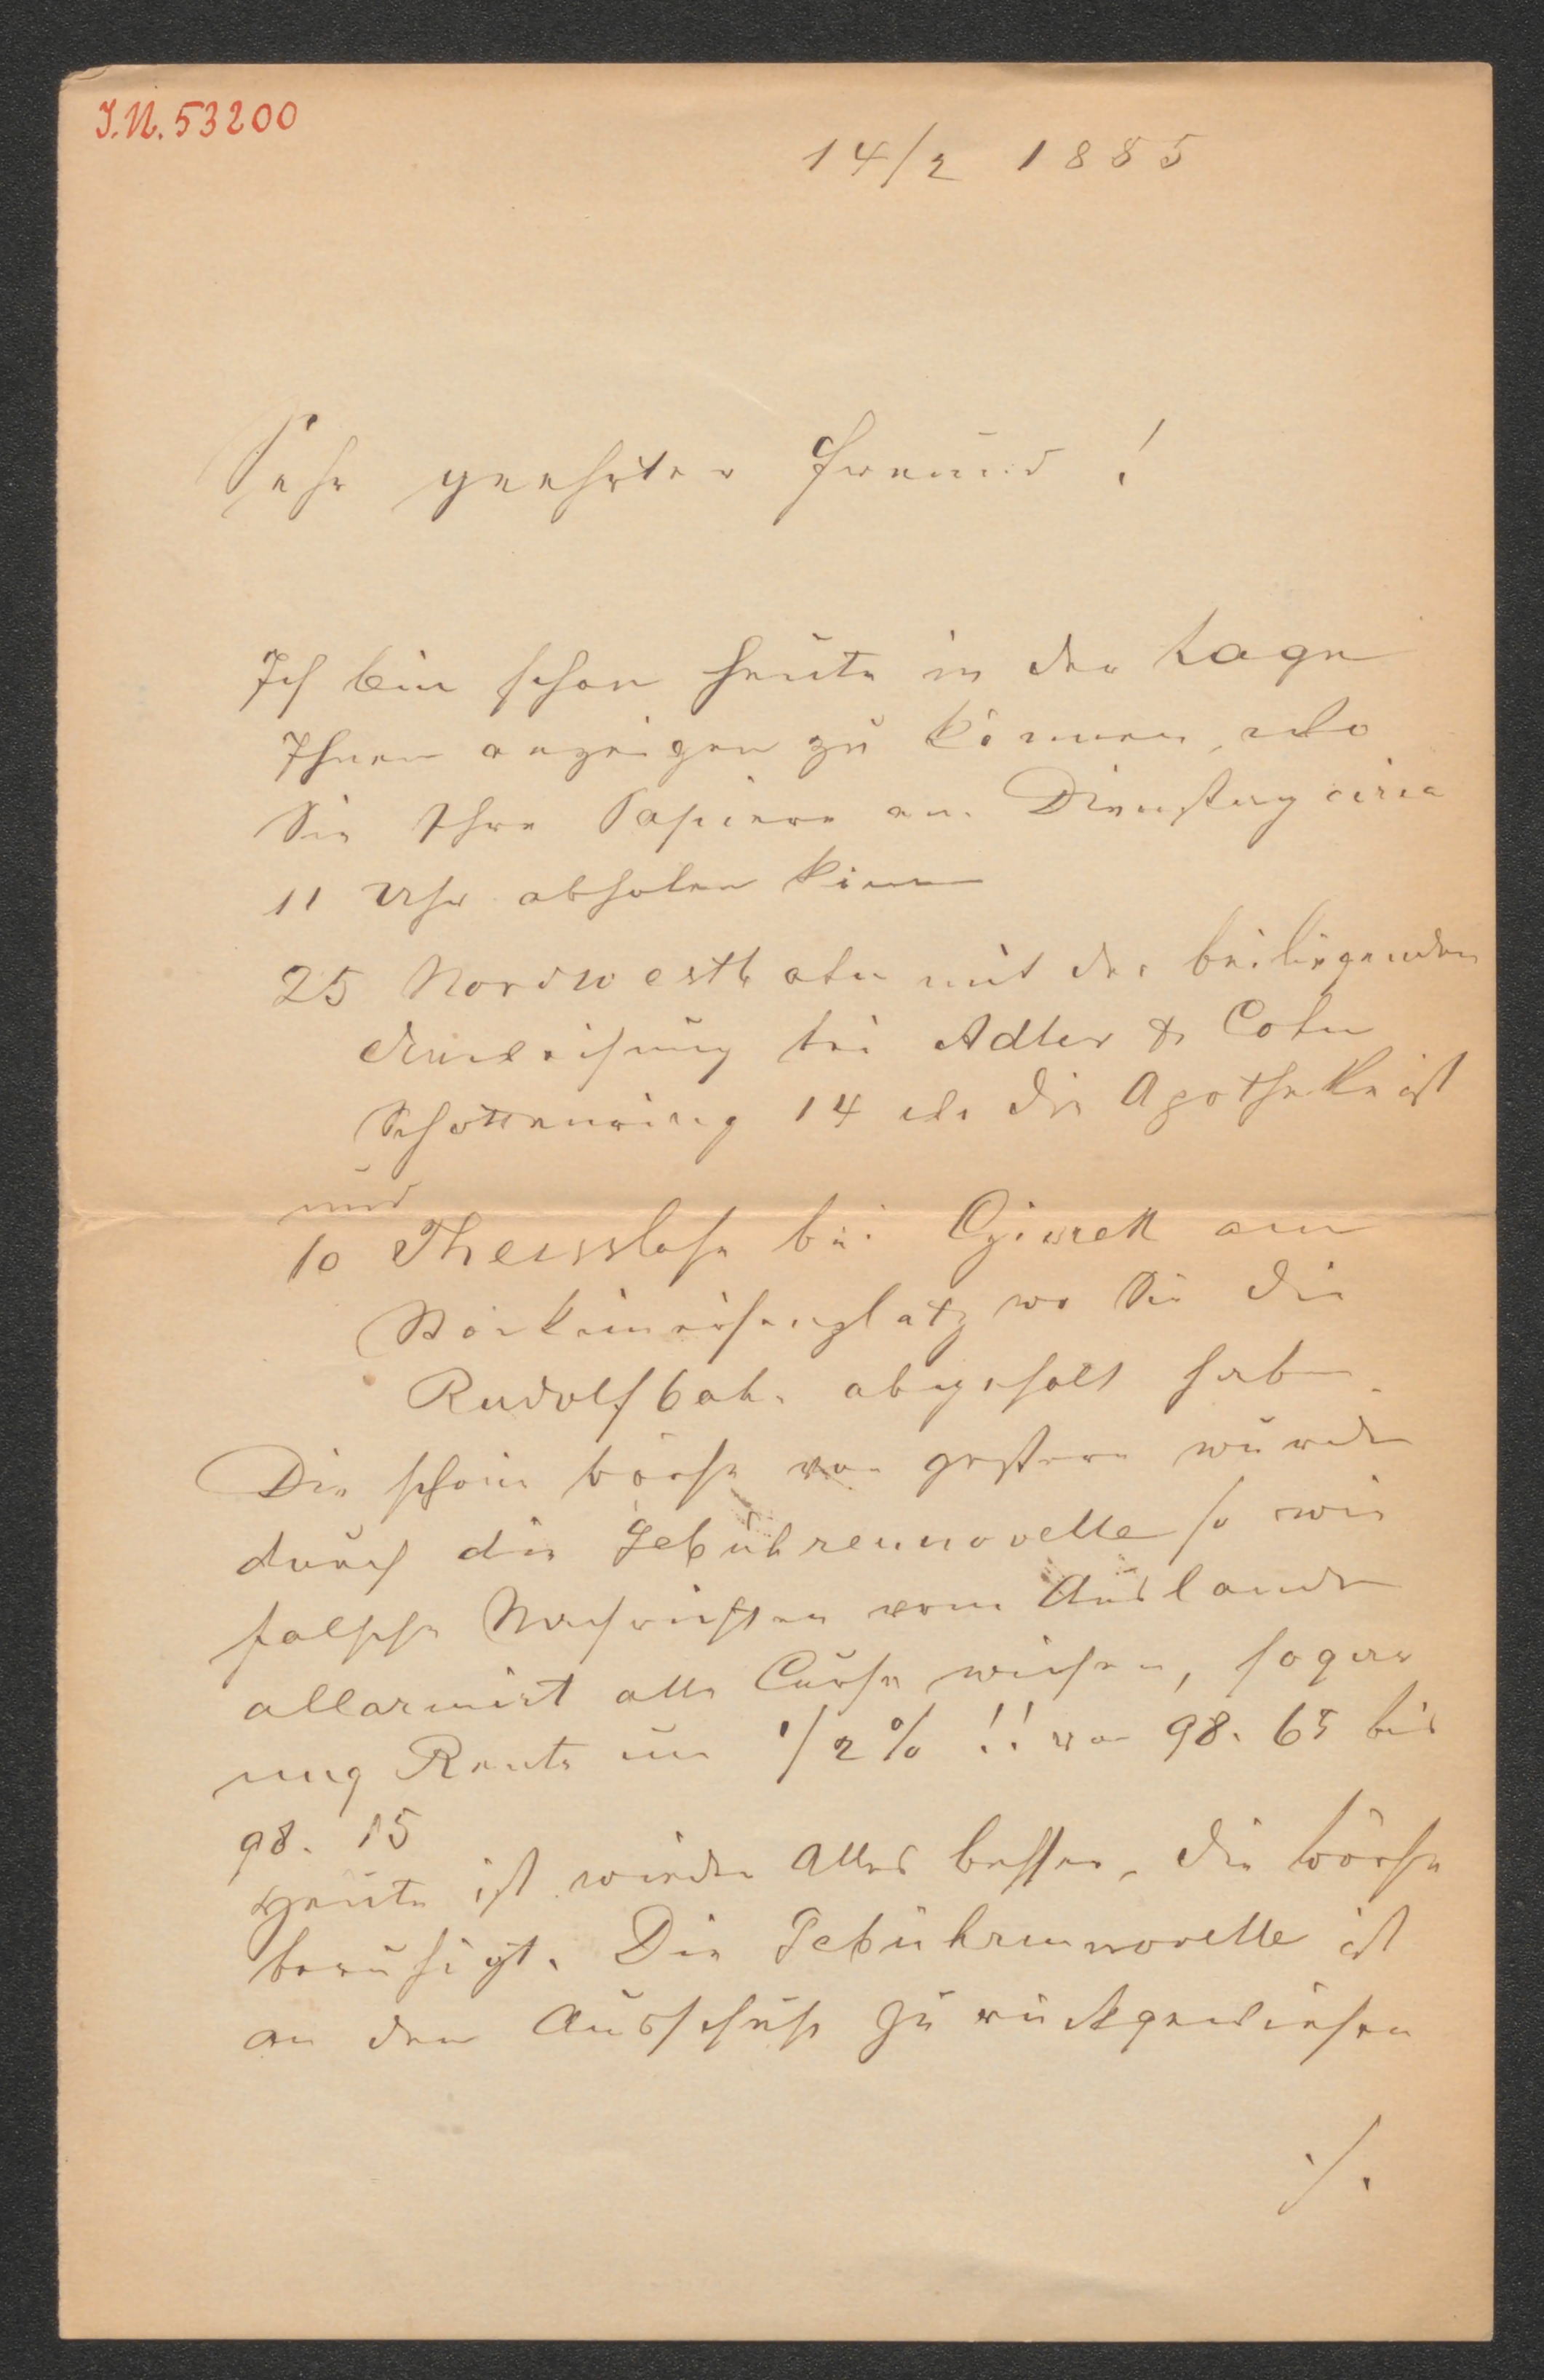 I.N. 53200
14/2 1885
Sehr geehrter Freund!
Ich bin schon heute in der Lage
Ihnen anzeigen zu können, wo
Sie Ihre Papiere am Dienstag circa
11 Uhr abholen können
25 Nordwestbahn mit der beiliegenden
Anweisung bei Adler & Cohn
Schottenring 14 wo die Apotheke ist
und
10 Theisslose bei am
Stockimeisenplatz wo Sie die
Rudolfbahn abgeholt haben.
Die schöne börse von gestern wurde
durch die Gebührennovelle so wie
falsche Nachrichten vom Auslande
allarmirt alle Curse wichen, sogar
ung Rente um 1/2% !! von 98.65 bis
98.15
Heute ist wieder Alles besser, die börse
beruhigt. Die Gebührennovelle ist
an den Ausschuß zurückgewiesen
./.